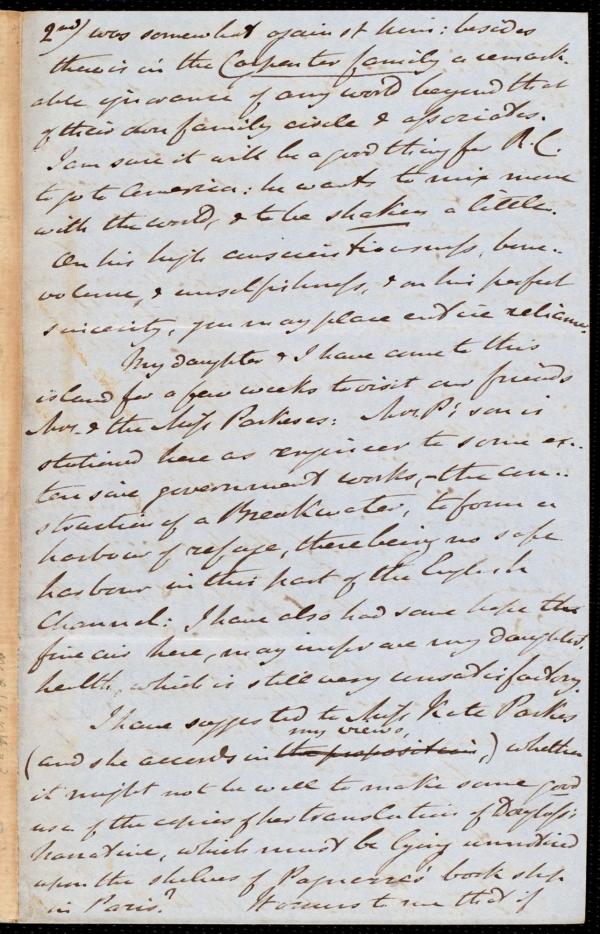 2nd/ was somewhat against him: besides
there is in the Carpenter family a remark-
able ignorance of any world beyond that
of their own family circle & associates.
I am sure it will be a good thing for R.C.
to go to America: he wants to mix more
with the world, & to be shaken a little.
On his high conscientiousness, bene-
volence, & unselfishness, & on his perfect
sincerity, you may place entire reliance.
My daughter & I have come to this
island for a few weeks to visit our friends
Mrs. & the Miss Parkeses: Mrs. P's son is
stationed here as engineer to some ex-
tensive government works,—the con-
struction of a Breakwater, to form a
harbour of refuge, there being no safe
harbour in this part of the English
Channel: I have also had some hope the
fine air here, may improve my daughter's
health, which is still very unsatisfactory.
I have suggested to Miss Kate Parkes
my views,
(and she accords in the proposition,) whether
it might not be well to make some good
use of the copies of her translation of Douglass's
narrative, which must be lying unnoticed
upon the shelves of Pagnerre's book shop
in Paris? It occurs to me that if